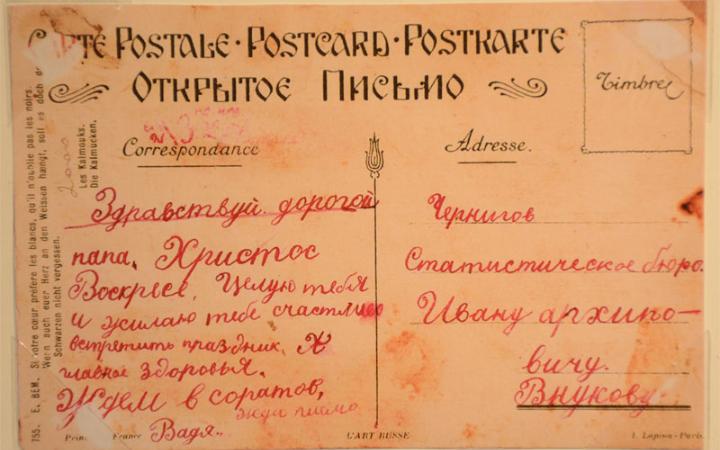 CARTE POSTALE · POSTCARD · POSTKARTE
ОТКРЫТОЕ ПИСЬМО
Timbre
Correspondance
Adresse.
Здравствуй дорогой
папа. Христос
Воскресе. Целую тебя
и жилаю тебе счастливо
встретить праздник. А
главное здоровья.
Ждем в соратов,
жди писмо
Вадя.
Чернигов
Статистическое бюро.
Ивану архипо-
вичу.
Внукову.
755. E. BEM. Si votre cœur préfère les blancs, qu'il n'oublie pas les noirs.
Wenn auch euer Herz an den Weissen hängt, soll es doch
Schwarzen nicht vergessen.
Les Kalmouks.
Die Kalmucken.
2000
France
L'ART RUSSE
I. Lapina - Paris.